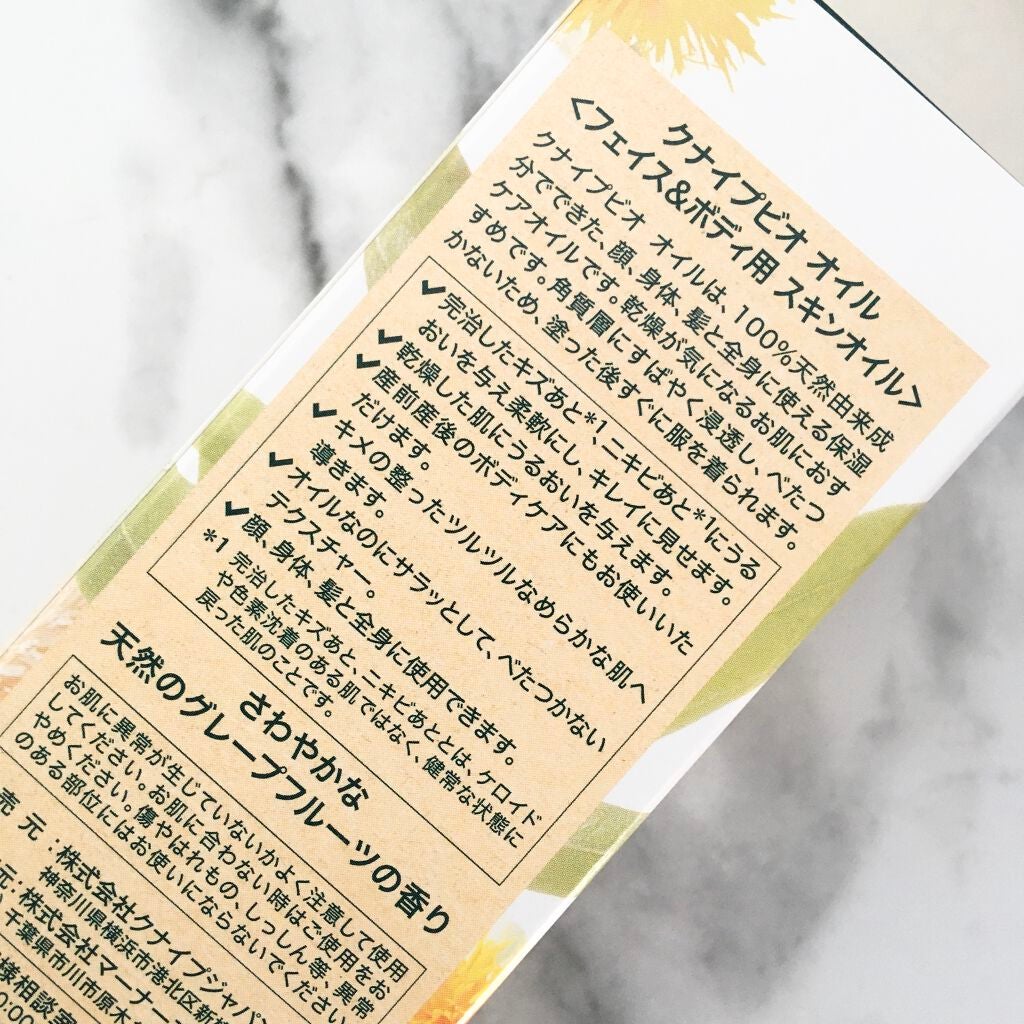 クナイプビオ オイル
<フェイス&ボディ用 スキンオイル>
クナイプビオ オイルは、100%天然由来成
分でできた、顔、身体、髪と全身に使える保湿
ケアオイルです。乾燥が気になるお肌におす
すめです。角質層にすばやく浸透し、べたつ
かないため、塗った後すぐに服を着られます。
✔完治したキズあと*1、ニキビあと*1にうる
おいを与え柔軟にし、キレイに見せます。
✔乾燥した肌にうるおいを与えます。
✔産前産後のボディケアにもお使いいた
だけます。
✔キメの整ったツルツルなめらかな肌へ
導きます。
✔オイルなのにサラッとして、べたつかない
テクスチャー。
✔顔、身体、髪と全身に使用できます。
*1 完治したキズあと、ニキビあととは、ケロイド
や色素沈着のある肌ではなく、健常な状態に
戻った肌のことです。
さわやかな
天然のグレープフルーツの香り
お肌に異常が生じていないかよく注意して使用
してください。お肌に合わない時はご使用をお
やめください。傷やはれもの、しっしん等、異常
のある部位にはお使いにならないでください
売 元:株式会社クナイプジャパン
神奈川県横浜市港北区新横
元:株式会社マーナー
千葉県市川市原木
様相談室
0:00